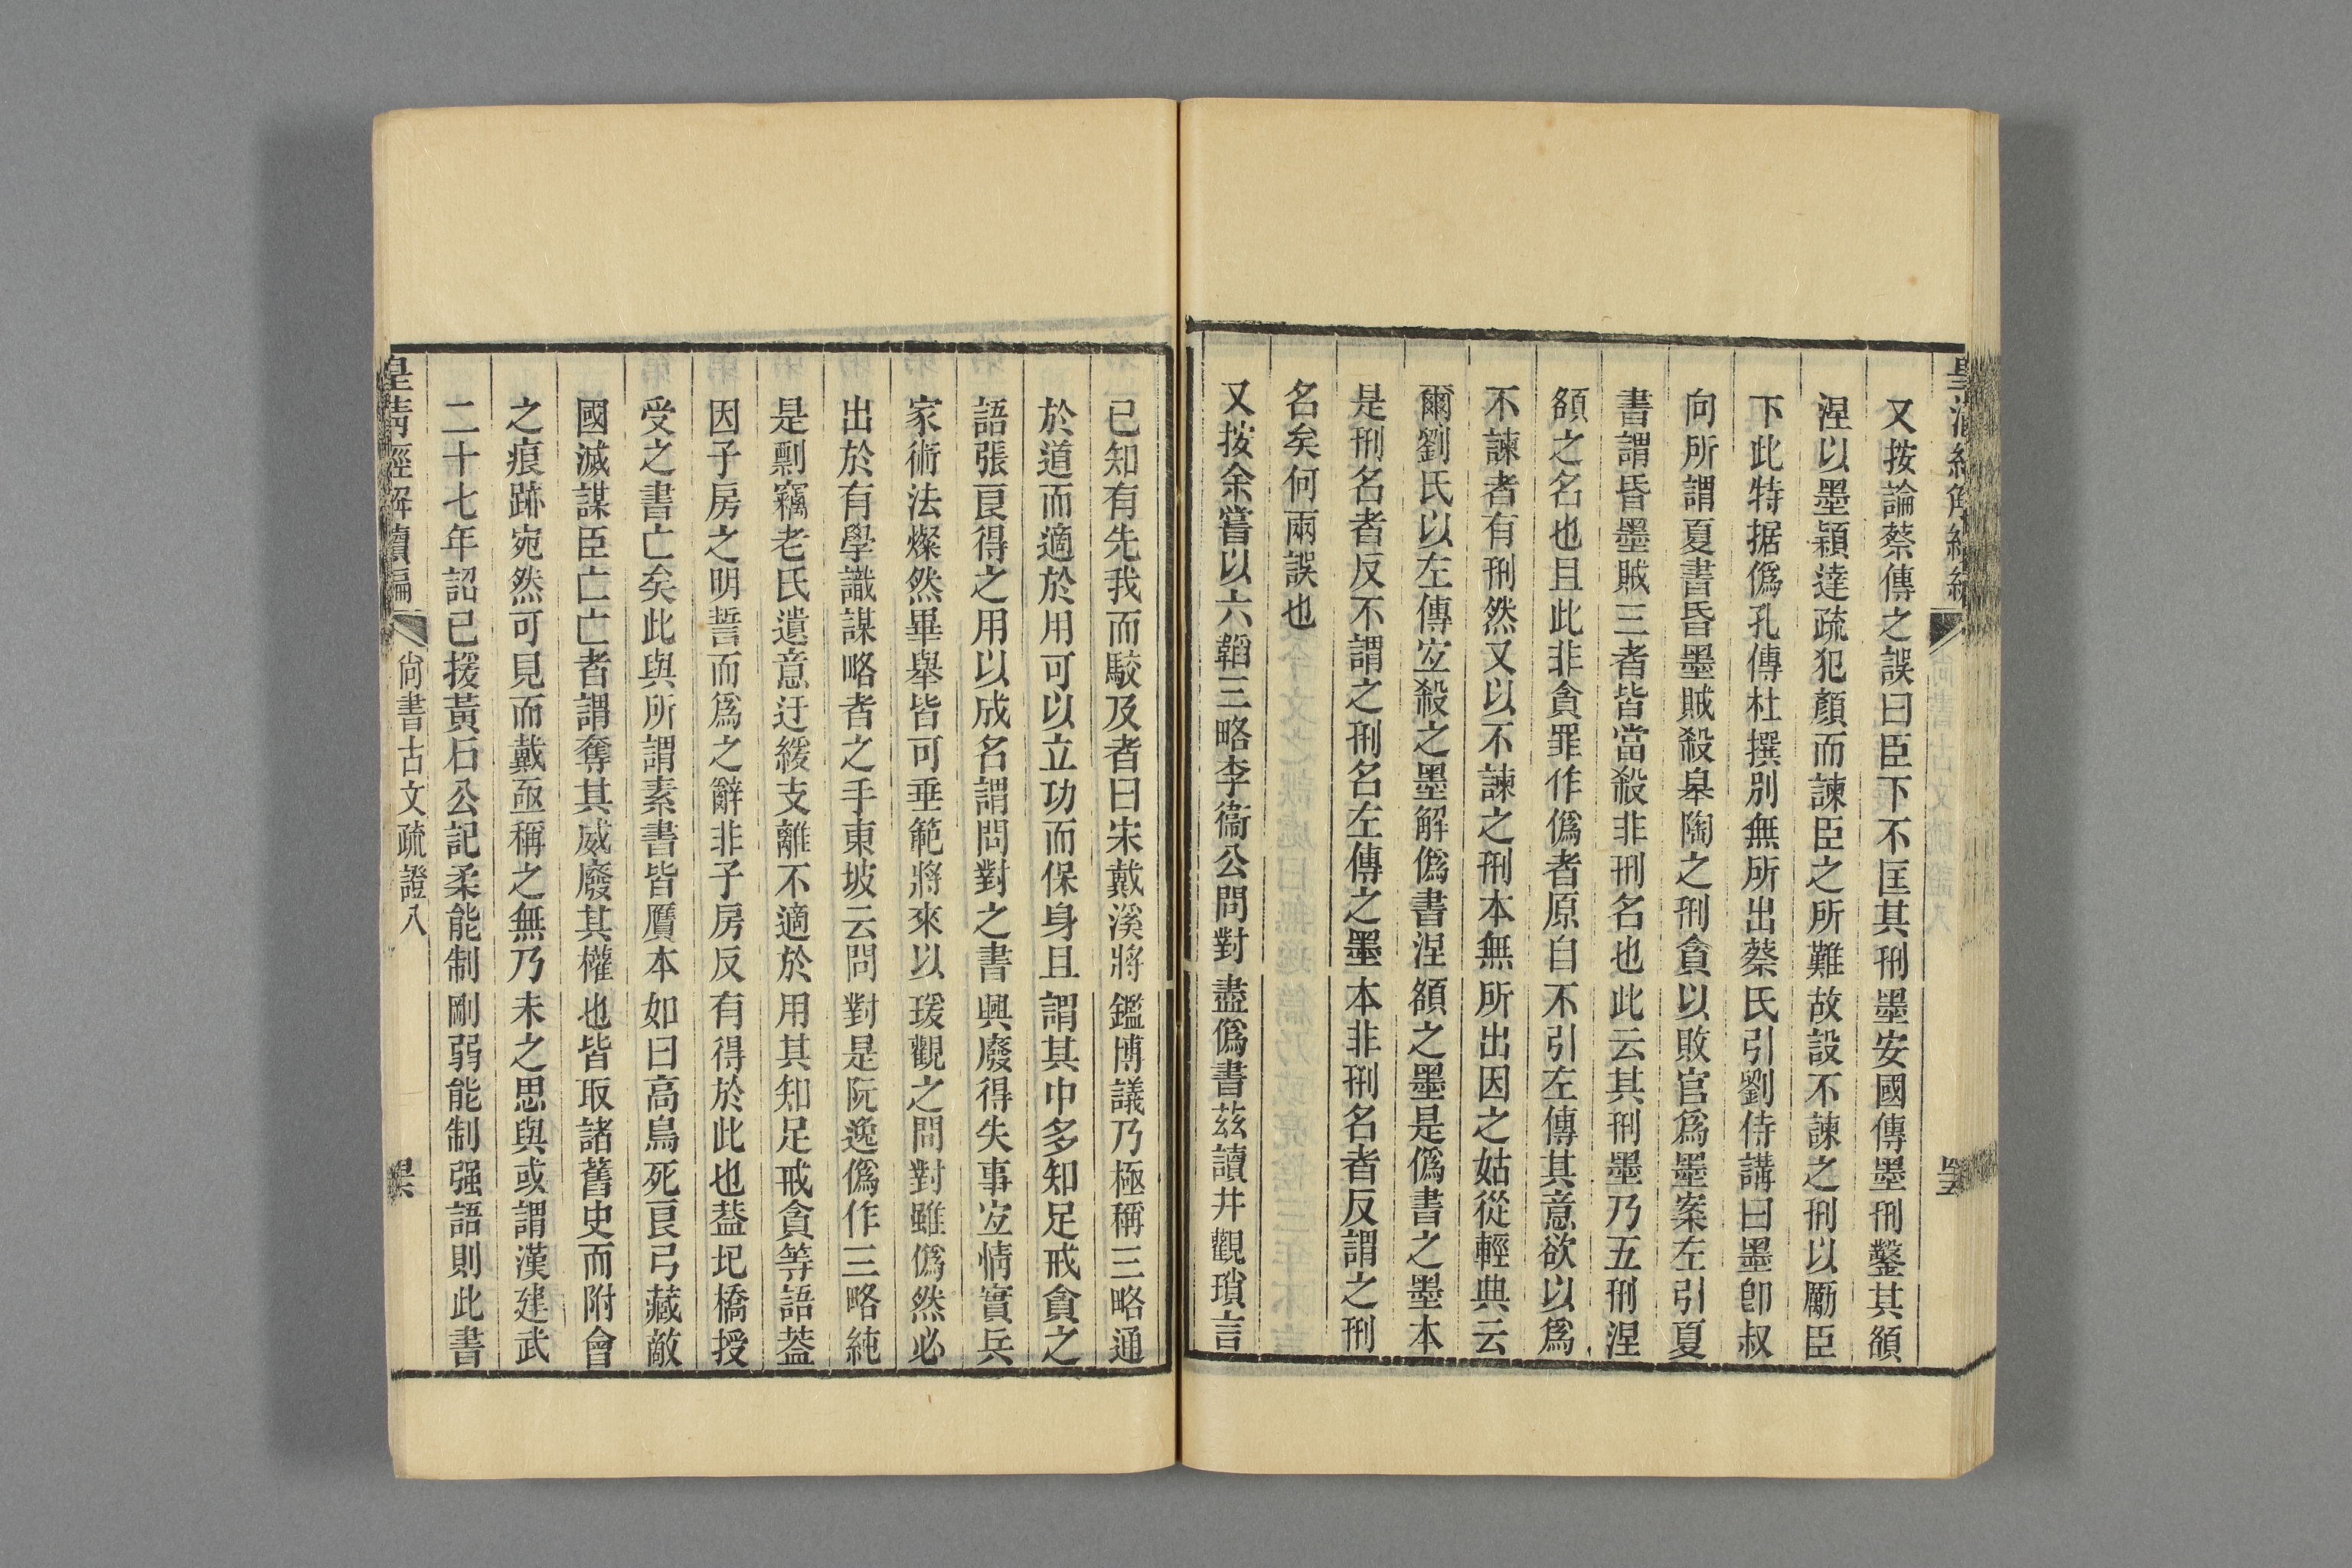 又按論蔡傳之誤曰臣下不匡其刑墨安國傳墨刑鑿其頟
涅以墨穎達疏犯顏而諫臣之所難故設不諫之刑以勵臣
下此特据僞孔傳杜撰別無所出蔡氏引劉侍講曰墨卽叔
向所謂夏書昏墨賊殺臯陶之刑貪以敗官爲墨案左引夏
書謂昏墨賊三者皆當殺非刑名也此云其刑墨乃五刑涅
頟之名也且此非貪罪作僞者原自不引左傳其意欲以爲
不諫者有刑然又以不諫之刑本無所出因之姑從輕典云
爾劉氏以左傳宐殺之墨解僞書涅頟之墨是僞書之墨本
是刑名者反不謂之刑名左傳之墨本非刑名者反謂之刑
名矣何兩誤也
又按余嘗以六韜三略李衞公問對盡僞書茲讀井觀瑣言
已知有先我而駮及者曰宋戴溪將鑑博議乃極稱三略通
於道而適於用可以立功而保身且謂其中多知足戒貪之
語張良得之用以成名謂問對之書興廢得失事宐情實兵
家術法燦然畢舉皆可垂範將來以瑗觀之問對雖僞然必
出於有學識謀略者之手東坡云問對是阮逸僞作三略純
是剽竊老氏遺意迂緩支離不適於用其知足戒貪等語葢
因子房之明哲而爲之辭非子房反有得於此也葢圯橋授
受之書亡矣此與所謂素書皆贗本如曰高鳥死良弓藏敵
國滅謀臣亡亡者謂奪其威廢其權也皆取諸舊史而附會
之痕跡宛然可見而戴亟稱之無乃未之思與或謂漢建武
二十七年詔已援黃石公記柔能制剛弱能制强語則此書
皇清經解續編
尚書古文疏證八